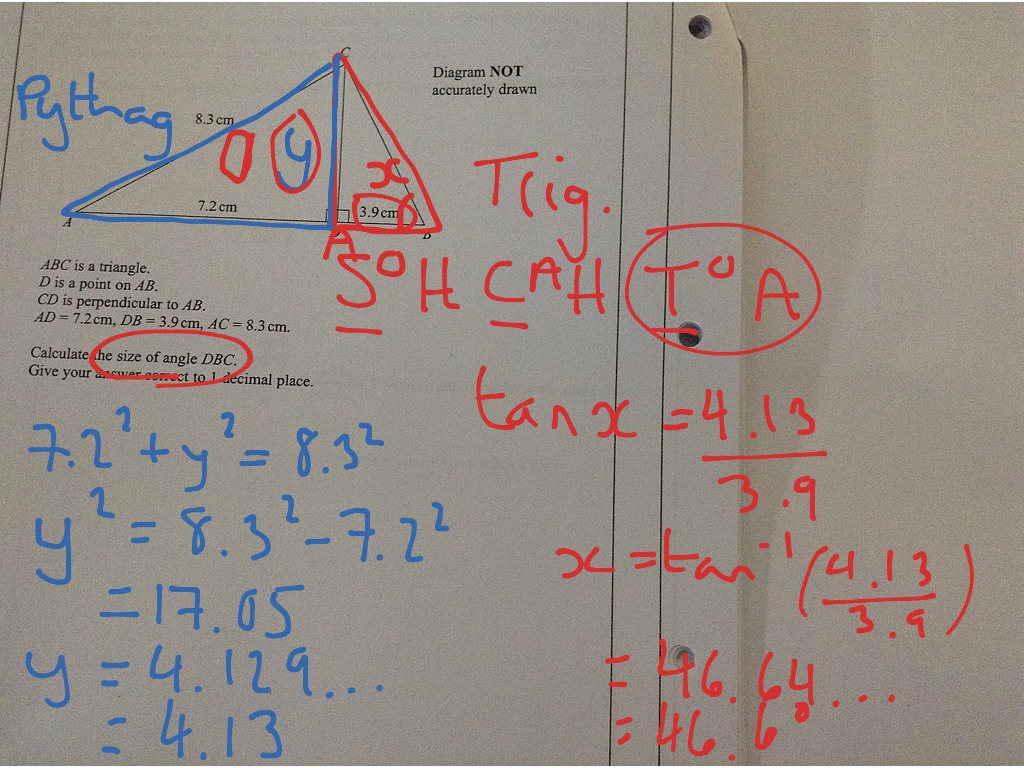 Pythag
C
Diagram NOT
accurately drawn
8.3 cm
O
y
x
Trig.
7.2 cm
3.9 cm
A
B
A
SOH CAH TOA
ABC is a triangle.
D is a point on AB.
CD is perpendicular to AB.
AD = 7.2 cm, DB = 3.9 cm, AC = 8.3 cm.
Calculate the size of angle DBC.
Give your answer correct to 1 decimal place.
7.2² + y² = 8.3²
y² = 8.3² - 7.2²
= 17.05
y = 4.129...
= 4.13
tan x = 4.13
3.9
x = tan⁻¹ (4.13
3.9)
= 46.64...
= 46.6°